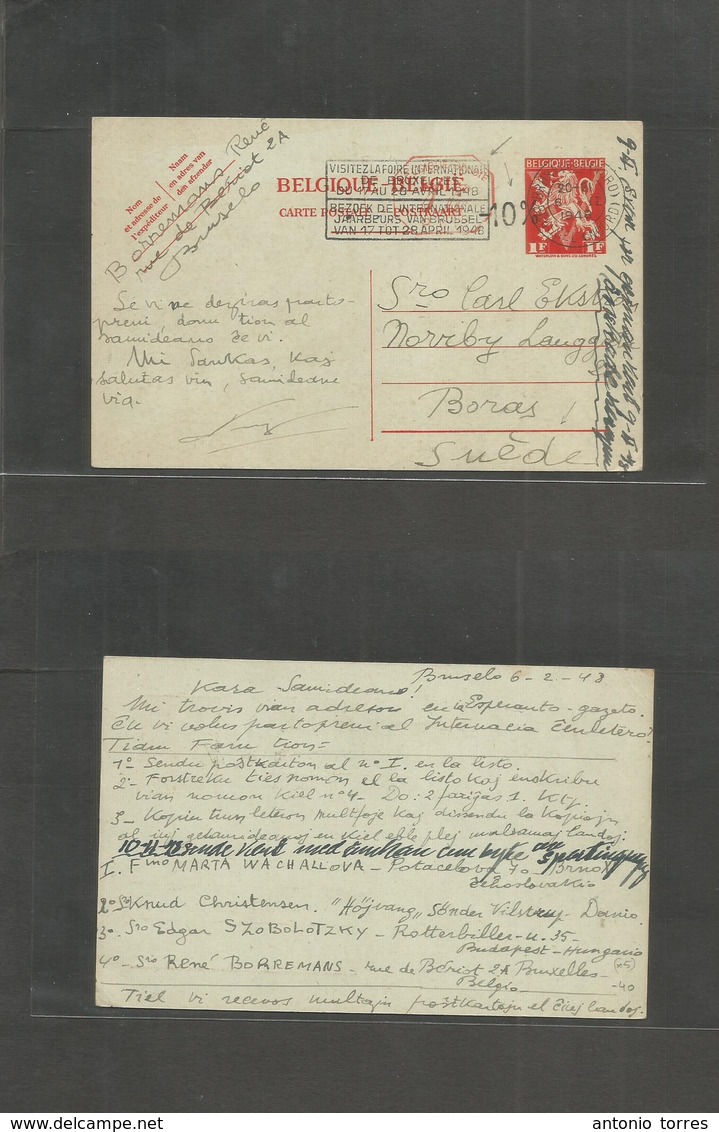 Nom
et adresse de
l'expéditeur
Naam
en adres van
den afzender
Borremans René
rue de Bériot 2A
Bruselo
VISITEZ LA FOIRE INTERNATIONALE
DE BRUXELLES
DU 17 AU 28 AVRIL 1948
BEZOEK DE INTERNATIONALE
JAARBEURS VAN BRUSSEL
VAN 17 TOT 28 APRIL 1948
BELGIQUE-BELGIË
CARTE POSTALE POSTKAART
-10%
BELGIQUE-BELGIE
1F 1F
WATERLOW & SONS LD. LONDRES
1948
Se vi ne deziras parto-
preni, donu tion al
samideano de vi.
Mi Dankas, kaj
salutas vin, samideane
via.
Sro Carl
Norrby
Borås
Suède
Bruselo 6-2-48
Kara Samideano!
Mi trovis vian adreson en la Esperanto-gazeto.
Ĉu vi volus partopreni al Internacia
Tiam Faru tion=
1º Sendu poŝtkarton al nº I. en la listo.
2- Forstreku ties nomon el la listo kaj enskribu
vian nomon kiel nº4- Do: 2 fariĝas 1. Ktp.
3- Kopiu tiun leteron multfoje kaj dissendu la kopiojn
al gesamideanoj en kiel eble plej malsamaj landoj.
I. Fino MARTA WACHALLOVA - Potacelova 70- Brno X
Ĉeĥoslovakio
2º Sro Knud Christensen. "Höjvang" Sönder Vilstrup- Danio.
3º- Sro Edgar SZOBOLOTZKY- Rotterbiller-u. 35-
Budapest-Hungario
4º- Sro René BORREMANS- rue de Bériot 2A Bruxelles-
Belgio -40
Tiel vi recevos multajn poŝtkartojn el ĉiuj landoj.
antonio torres